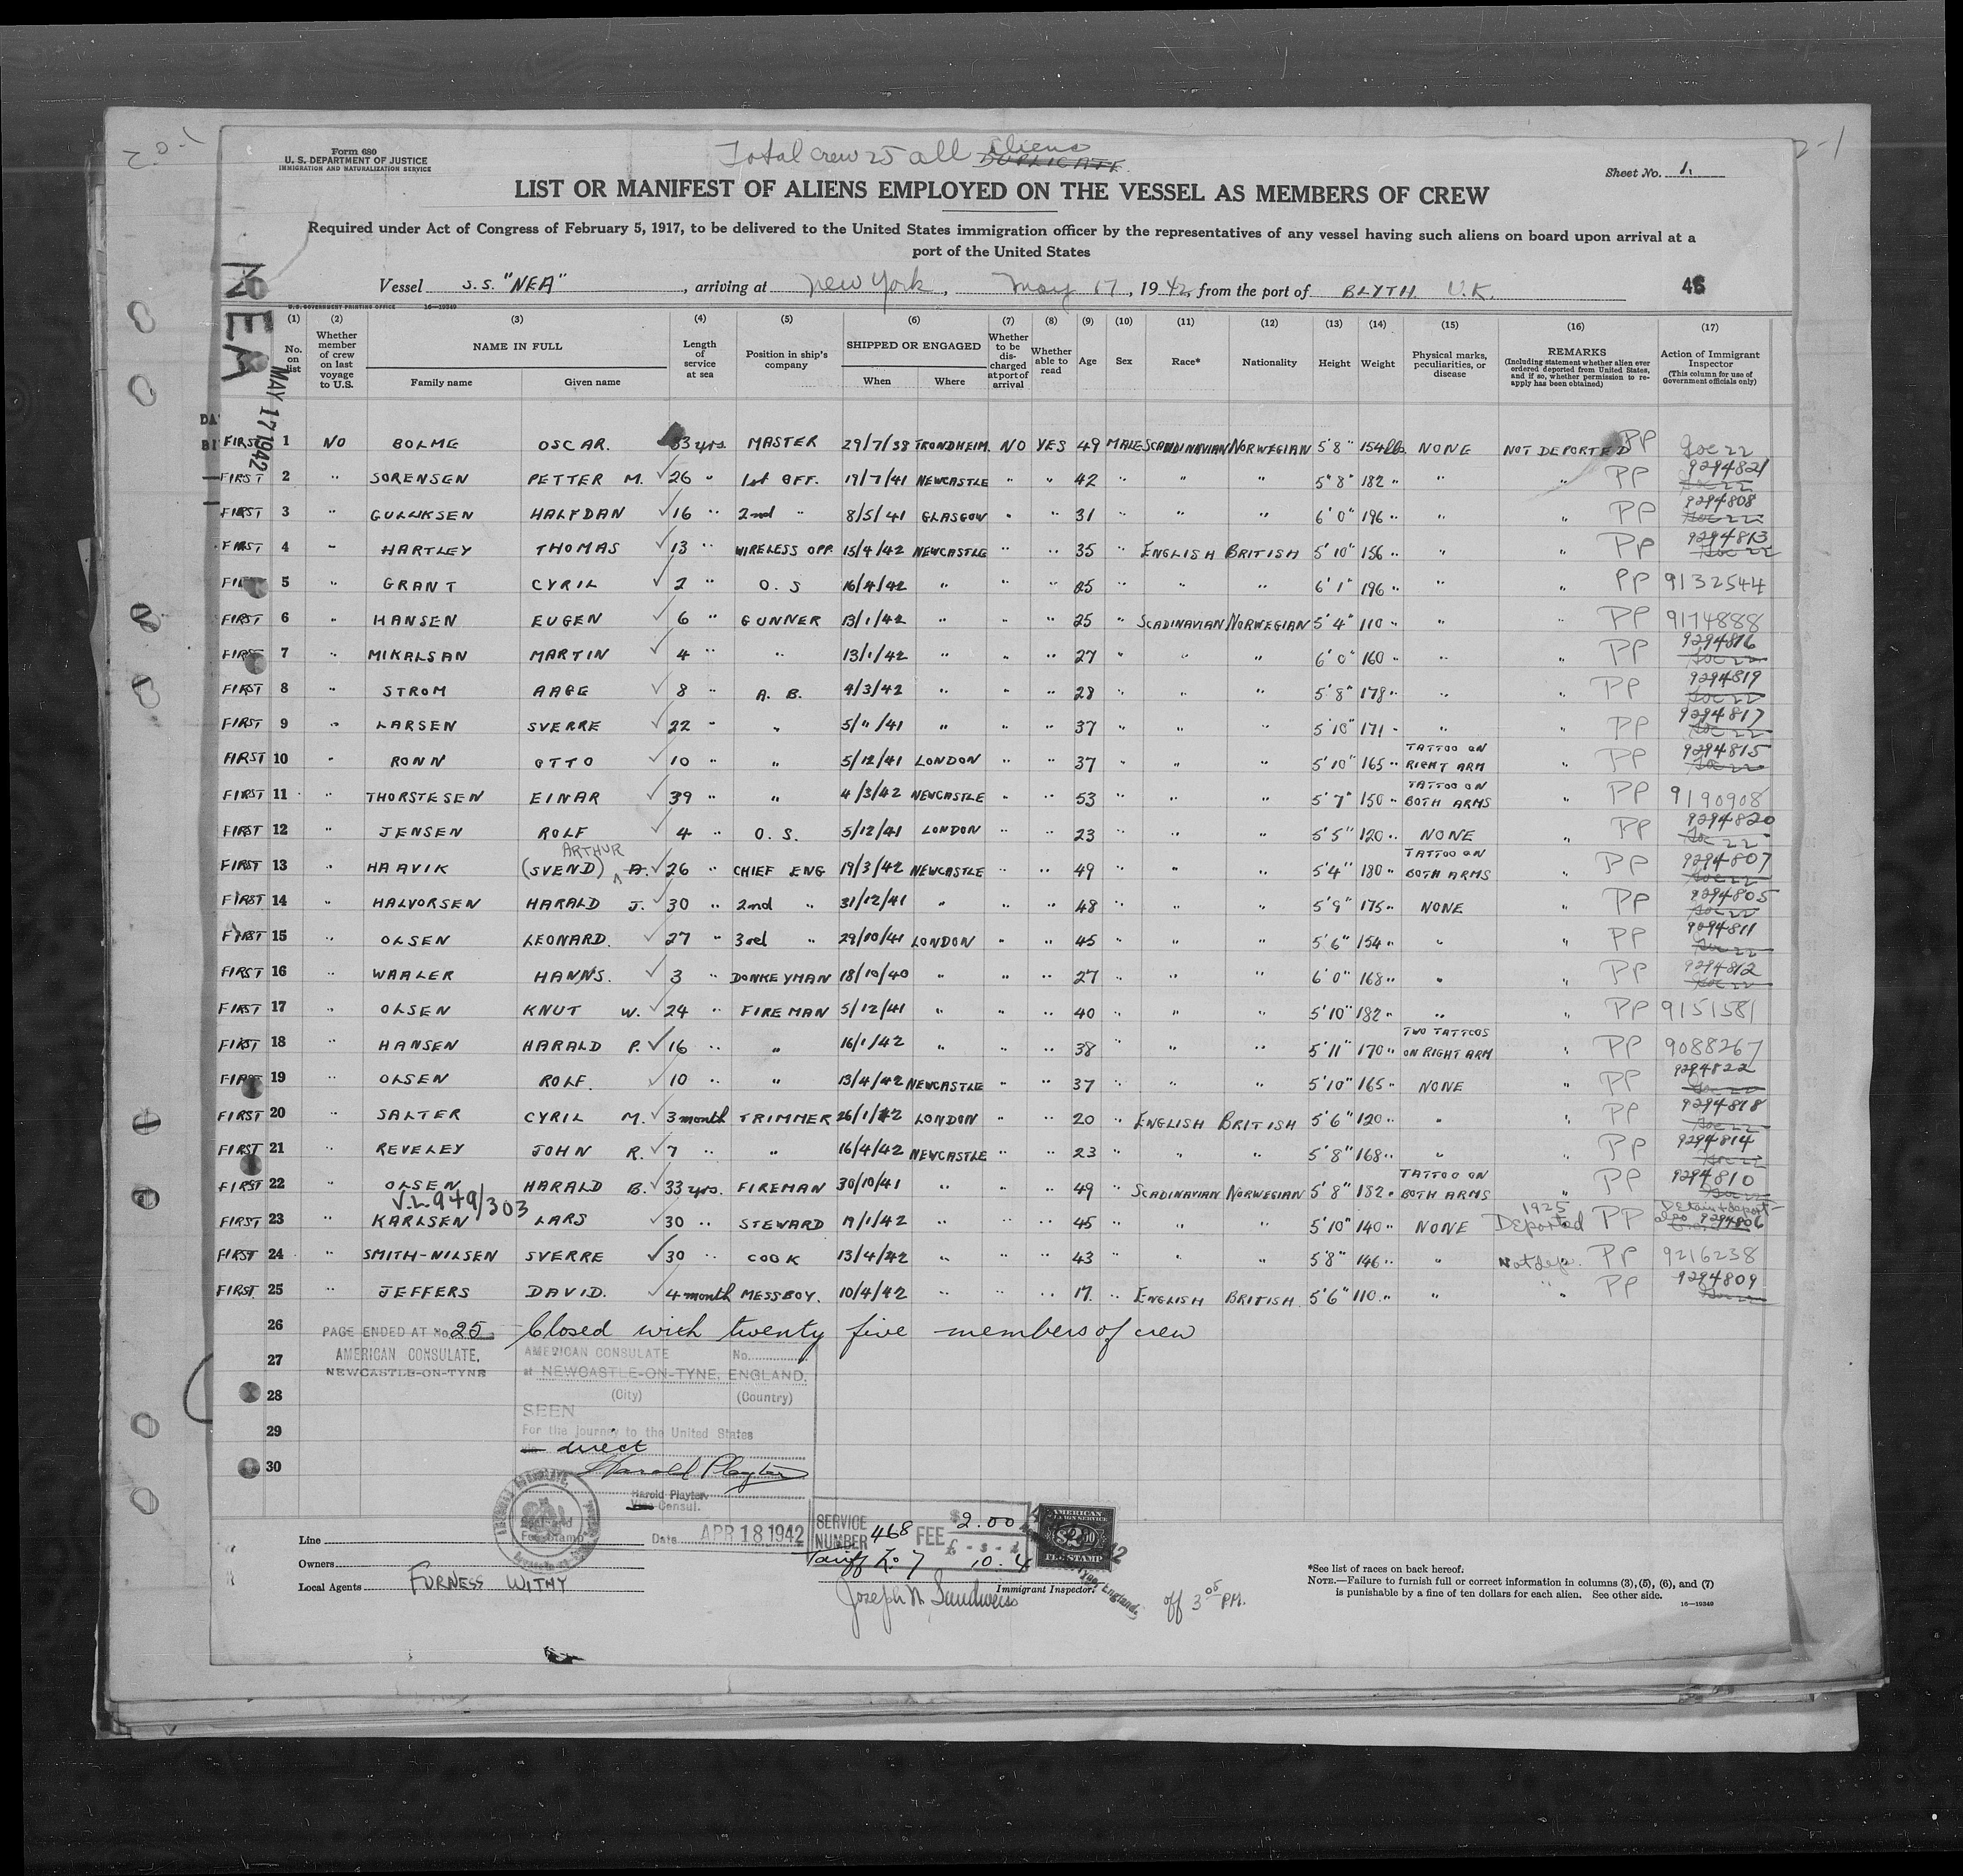 Total crew 25 all aliens
DUPLICATE
Form 680
U. S. DEPARTMENT OF JUSTICE
IMMIGRATION AND NATURALIZATION SERVICE
Sheet No. 1.
2-1
LIST OR MANIFEST OF ALIENS EMPLOYED ON THE VESSEL AS MEMBERS OF CREW
Required under Act of Congress of February 5, 1917, to be delivered to the United States immigration officer by the representatives of any vessel having such aliens on board upon arrival at a
port of the United States
Vessel S.S. "NEA", arriving at New York, May 17, 1942, from the port of BLYTH. U.K.
U.S. GOVERNMENT PRINTING OFFICE 16—19349
NEA
MAY 17 1942
(1) No. on list
(2) Whether member of crew on last voyage to U.S.
(3) NAME IN FULL Family name Given name
(4) Length of service at sea
(5) Position in ship's company
(6) SHIPPED OR ENGAGED When Where
(7) Whether to be discharged at port of arrival
(8) Whether able to read
(9) Age
(10) Sex
(11) Race*
(12) Nationality
(13) Height
(14) Weight
(15) Physical marks, peculiarities, or disease
(16) REMARKS (Including statement whether alien ever ordered deported from United States, and if so, whether permission to reapply has been obtained)
(17) Action of Immigrant Inspector (This column for use of Government officials only)
FIRST 1 NO BOLME OSCAR. 33 yrs. MASTER 29/7/38 TRONDHEIM. NO YES 49 MALE SCANDINAVIAN NORWEGIAN 5'8" 154 lbs. NONE NOT DEPORTED PP
FIRST 2 " SORENSEN PETTER M. 26 " 1st OFF. 17/7/41 NEWCASTLE " " 42 " " " 5'8" 182 " " " PP 9294821
FIRST 3 " GULLIKSEN HALFDAN 16 " 2nd " 8/5/41 GLASGOW " " 31 " " " 6'0" 196 " " " PP 9294808
FIRST 4 " HARTLEY THOMAS 13 " WIRELESS OPP. 15/4/42 NEWCASTLE " " 35 " ENGLISH BRITISH 5'10" 156 " " " PP 9294813
5 " GRANT CYRIL 2 " O. S 16/4/42 " " " 25 " " " 6'1" 196 " " " PP 9132544
FIRST 6 " HANSEN EUGEN 6 " GUNNER 13/1/42 " " " 25 " SCADINAVIAN NORWEGIAN 5'4" 110 " " " PP 9174888
FIRST 7 " MIKALSAN MARTIN 4 " " 13/1/42 " " " 27 " " " 6'0" 160 " " " PP 9294816
FIRST 8 " STROM AAGE 8 " A. B. 4/3/42 " " " 28 " " " 5'8" 178 " " " PP 9294819
FIRST 9 " LARSEN SVERRE 22 " " 5/"/41 " " " 37 " " " 5'10" 171 " " " PP 9294817
FIRST 10 " RONN OTTO 10 " " 5/12/41 LONDON " " 37 " " " 5'10" 165 " TATTOO ON RIGHT ARM " PP 9294815
FIRST 11 " THORSTESEN EINAR 39 " " 4/3/42 NEWCASTLE " " 53 " " " 5'7" 150 " TATTOO ON BOTH ARMS " PP 9190908
FIRST 12 " JENSEN ROLF 4 " O. S. 5/12/41 LONDON " " 23 " " " 5'5" 120 " NONE " PP 9294820
FIRST 13 " HAAVIK (SVEND) ARTHUR A. 26 " CHIEF ENG 19/3/42 NEWCASTLE " " 49 " " " 5'4" 180 " TATTOO ON BOTH ARMS " PP 9294807
FIRST 14 " HALVORSEN HARALD J. 30 " 2nd " 31/12/41 " " " 48 " " " 5'9" 175 " NONE " PP 9294805
FIRST 15 " OLSEN LEONARD. 27 " 3rd " 29/10/41 LONDON " " 45 " " " 5'6" 154 " " " PP 9294811
FIRST 16 " WAALER HANNS. 3 " DONKEYMAN 18/10/40 " " " 27 " " " 6'0" 168 " " " PP 9294812
FIRST 17 " OLSEN KNUT W. 24 " FIREMAN 5/12/41 " " " 40 " " " 5'10" 182 " " " PP 9151581
FIRST 18 " HANSEN HARALD P. 16 " " 16/1/42 " " " 38 " " " 5'11" 170 " TWO TATTOOS ON RIGHT ARM " PP 9088267
FIRST 19 " OLSEN ROLF. 10 " " 13/4/42 NEWCASTLE " " 37 " " " 5'10" 165 " NONE " PP 9294822
FIRST 20 " SALTER CYRIL M. 3 month TRIMMER 26/1/42 LONDON " " 20 " ENGLISH BRITISH 5'6" 120 " " " PP 9294818
FIRST 21 " REVELEY JOHN R. 7 " " 16/4/42 NEWCASTLE " " 23 " " " 5'8" 168 " " " PP 9294814
FIRST 22 " OLSEN HARALD B. 33 yrs. FIREMAN 30/10/41 " " " 49 " SCADINAVIAN NORWEGIAN 5'8" 182 " TATTOO ON BOTH ARMS " PP 9294810
V.L. 949/303
FIRST 23 " KARLSEN LARS 30 " STEWARD 19/1/42 " " " 45 " " " 5'10" 140 " NONE 1925 Deported PP Detain + deport 9294806
FIRST 24 " SMITH-NILSEN SVERRE 30 " COOK 13/4/42 " " " 43 " " " 5'8" 146 " " Not dep. PP 9216238
FIRST 25 " JEFFERS DAVID. 4 month MESSBOY. 10/4/42 " " " 17. " ENGLISH BRITISH 5'6" 110 " " " PP 9294809
26 PAGE ENDED AT No. 25 Closed with twenty five members of crew
27 AMERICAN CONSULATE, NEWCASTLE-ON-TYNE
AMERICAN CONSULATE No.
at NEWCASTLE-ON-TYNE, ENGLAND.
28 (City) (Country)
SEEN
29 For the journey to the United States
direct
30 Harold Playter
Harold Playter,
Vice Consul.
Date APR 18 1942
SERVICE NUMBER 468 FEE $2.00
£ - s - d
Tariff No 7 10. 4
AMERICAN
$2.00
FEE STAMP
Line
Owners
Local Agents FURNESS WITHY
Joseph N. Sandweiss
Immigrant Inspector.
off 3 05 P.M.
*See list of races on back hereof.
NOTE.—Failure to furnish full or correct information in columns (3), (5), (6), and (7)
is punishable by a fine of ten dollars for each alien. See other side.
16—19349